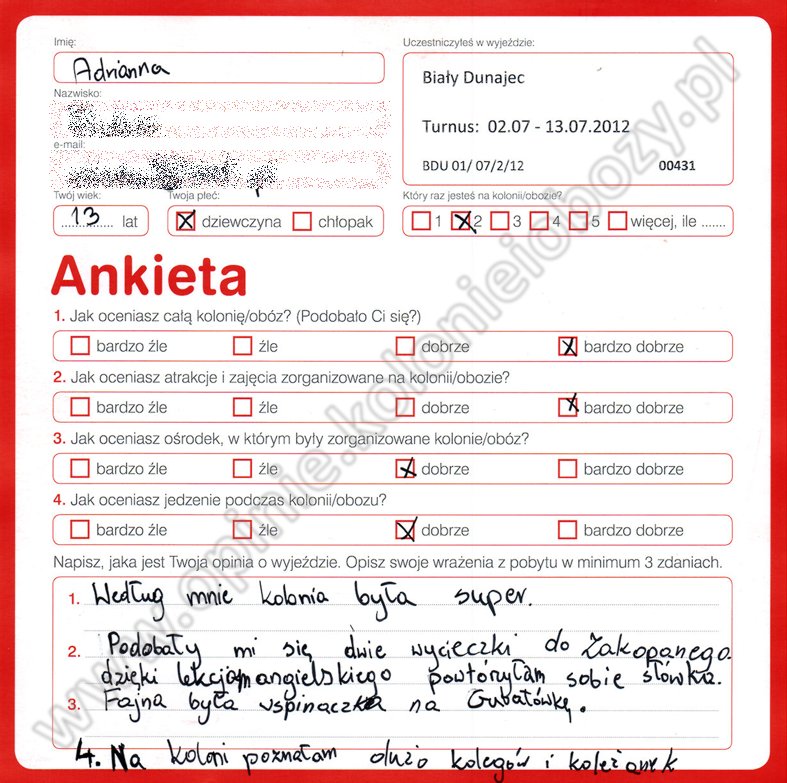 Imię:
Uczestniczyłeś w wyjeździe:
Adrianna
Biały Dunajec
Nazwisko:
Turnus: 02.07 - 13.07.2012
e-mail:
BDU 01/ 07/2/12 00431
Twój wiek:
Twoja płeć:
Który raz jesteś na kolonii/obozie?
13 lat
dziewczyna chłopak
1 2 3 4 5 więcej, ile .......
Ankieta
1. Jak oceniasz całą kolonię/obóz? (Podobało Ci się?)
bardzo źle źle dobrze bardzo dobrze
2. Jak oceniasz atrakcje i zajęcia zorganizowane na kolonii/obozie?
bardzo źle źle dobrze bardzo dobrze
3. Jak oceniasz ośrodek, w którym były zorganizowane kolonie/obóz?
bardzo źle źle dobrze bardzo dobrze
4. Jak oceniasz jedzenie podczas kolonii/obozu?
bardzo źle źle dobrze bardzo dobrze
Napisz, jaka jest Twoja opinia o wyjeździe. Opisz swoje wrażenia z pobytu w minimum 3 zdaniach.
1. Według mnie kolonia była super.
2. Podobały mi się dwie wycieczki do Zakopanego.
dzięki lekcjom angielskiego powtóryłam sobie słówka.
3. Fajna była wspinaczka na Gubałówkę.
4. Na koloni poznałam dużo kolegów i koleżanek
www.opinie.kolonieiobozy.pl